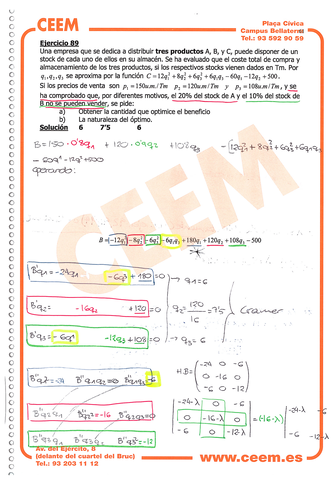 CEEM
Plaça Cívica
Campus Bellaterra
Tel.: 93 592 90 59
Ejercicio 89
Una empresa que se dedica a distribuir tres productos A, B, y C, puede disponer de un
stock de cada uno de ellos en su almacén. Se ha evaluado que el coste total de compra y
almacenamiento de los tres productos, si los respectivos stocks vienen dados en Tm. Por
q₁,q₂,q₃ se aproxima por la función C = 12q₁² + 8q₂² + 6q₃² + 6q₁q₃ − 60q₁ − 12q₂ + 500.
Si los precios de venta son p₁ = 150u.m/Tm p₂ = 120u.m/Tm y p₃ = 108u.m/Tm, y se
ha comprobado que, por diferentes motivos, el 20% del stock de A y el 10% del stock de
B no se pueden vender, se pide:
a) Obtener la cantidad que optimice el beneficio
b) La naturaleza del óptimo.
Solución 6 7'5 6
B = 150·0'8q₁ + 120·0'9q₂ + 108q₃ − [12q₁² + 8q₂² + 6q₃² + 6q₁q₃
operando:
CEEM
B = −12q₁² − 8q₂² − 6q₃² − 6q₁q₃ + 180q₁ + 120q₂ + 108q₃ − 500
B'q₁ = −24q₁ −6q₃ + 180 = 0 → q₁ = 6
B'q₂ = −16q₂ +120 = 0 q₂ = 120/16 = 7'5 Cramer
B'q₃ = −6q₁ −12q₃ + 108 = 0 → q₃ = 6
H.B = ( −24 0 −6
0 −16 0
−6 0 −12 )
B''q₁² = −24 B''q₁q₂ = 0 B''q₁q₃ = −6
B''q₂q₁ B''q₂² = −16 B''q₂q₃ = 0
B''q₃q₁ B''q₃q₂ B''q₃² = −12
−24−λ 0 −6
0 −16−λ 0 = (−16−λ)
−6 0 −12−λ
Av. del Ejército, 8
(delante del cuartel del Bruc)
Tel.: 93 203 11 12
www.ceem.es